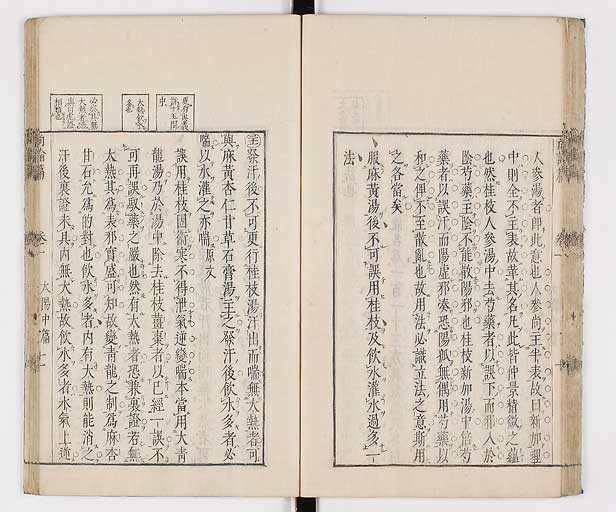 人參湯者即此意也人參尚主半表故曰新加理
中則全不主表故革其名凡此皆仲景精微之蘊
也然桂枝人參湯中去芍藥者以誤下而邪入於
陰芍藥主陰不能散陽邪也桂枝新加湯中倍芍
藥者以誤汗而陽虛邪湊恐陽孤無偶用芍藥以
和之俾不至散亂也故用法必識立法之意斯用
之各當矣
服麻黃湯後不可誤用桂枝及飲水灌水過多一
法
發汗後不可更行桂枝湯汗出而喘無大熱者可
與麻黃杏仁甘草石膏湯主之發汗後飲水多者必
喘以水灌之亦喘原文
誤用桂枝固衛寒不得泄氣逆變喘本當用大青
龍湯乃於湯中除去桂枝薑棗者以已經一誤不
可再誤馭藥之嚴也然有大熱者恐兼裏證若無
大熱其為表邪實盛可知故變青龍之制為麻杏
甘石允為的對也飲水多者內有大熱則能消之
汗後裏證未具內無大熱故飲水多者水氣上逆
尚論篇
卷一
太陽中篇
十一